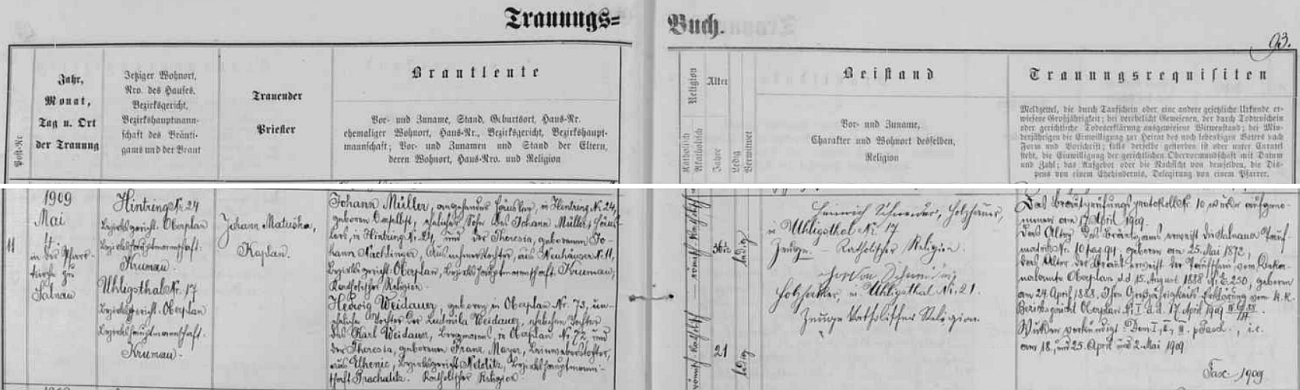 Trauungs=
Buch.
93.
Post-Nr
Jahr,
Monat,
Tag u. Ort
der Trauung
Jetziger Wohnort,
Nro. des Hauses,
Bezirksgericht,
Bezirkshauptmann-
schaft des Bräuti-
gams und der Braut
Trauender
Priester
Brautleute
Vor- und Zuname, Stand, Geburtsort, Haus-Nr.
ehemaliger Wohnort, Haus-Nr., Bezirksgericht, Bezirkshaupt-
mannschaft; Vor- und Zunamen und Stand der Eltern,
deren Wohnort, Haus-Nro. und Religion
Religion
Katholisch
Akatholisch
Alter
Jahre
Ledig
Verwitwet
Beistand
Vor- und Zuname,
Charakter und Wohnort desselben,
Religion
Trauungsrequisiten
Meldzettel, die durch Taufschein oder eine andere gesetzliche Urkunde er-
wiesene Großjährigkeit; bei verehelicht Gewesenen, der durch Todtenschein
oder gerichtliche Todeserklärung ausgewiesene Witwenstand; bei Min-
derjährigen die Einwilligung zur Heirat des noch lebendigen Vaters nach
Form und Vorschrift; falls derselbe gestorben ist oder unter Curatel
steht, die Einwilligung der gerichtlichen Obervormundschaft mit Datum
und Zahl; das Aufgebot oder die Nachsicht von demselben, die Dis-
pens von einem Ehehindernis, Delegirung von einem Pfarrer.
11
1909
Mai
4.
in der Pfarr-
kirche zu
Salnau
Hintring Nr. 24
Bezirksgericht Oberplan
Bezirkshauptmannschaft
Krumau.
Uhligsthal Nr. 17
Bezirksgericht Oberplan
Bezirkshauptmannschaft
Krumau.
Johann
Kaplan.
Johann Müller, angehender Häusler, in Hintring Nr. 24,
geboren daselbst, ehelicher Sohn des Johann Müller, Häus-
lers, in Hintring Nr. 24, und der Theresia, geborenen Jo-
hann, aus Neuhäuser Nr. 11,
Bezirksgericht Oberplan, Bezirkshauptmannschaft Krumau,
Katholischer Religion.
Hedwig Weidauer, geboren in Oberplan Nr. 73, un-
eheliche Tochter der Ludmila Weidauer, ehelichen Tochter
des Karl Weidauer, Bergmanns, in Oberplan Nr. 72 und
der Theresia, geborenen Franz Mayer,
aus, Bezirksgericht Netolitz, Bezirkshauptmann-
schaft Prachatitz. Katholischer Religion
römisch katholisch
36
ledig
römisch katholisch
21
ledig
Heinrich Schneider, Holzhauer,
in Uhligsthal Nr. 17
Zeuge – Katholischer Religion.
Schneider
Holzhacker, in Uhligsthal Nr. 21.
Zeuge Katholischer Religion
Das Brautprüfungsprotokoll Nr. 10 wurde aufgenom-
men am 17 April 1909
Das Alter des Bräutigams erweist der Salnauer Tauf-
geboren am 25. Mai 1872,
das Alter der Braut erweist der Taufschein vom Deka-
nalamte Oberplan d.d. 15. August 1888 Nr. E. 250, geboren
am 24. April 1888. Ihre Großjährigkeits Erklärung vom k.k.
Bezirksgericht Oberplan d.d. 17. April 1909
Wurden verkündigt Dom. I., II., III. Pasch., i.e.
am 18., und 25. April und 2. Mai 1909.
1909